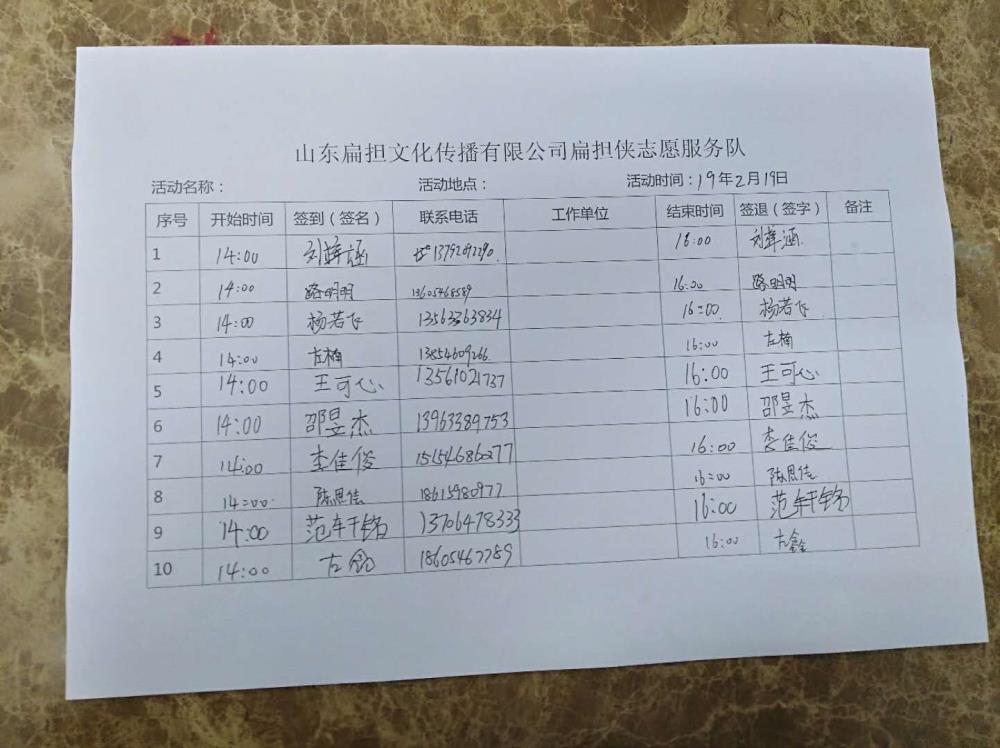 山东扁担文化传播有限公司扁担侠志愿服务队
活动名称： 活动地点： 活动时间：19年2月19日
序号 开始时间 签到（签名） 联系电话 工作单位 结束时间 签退（签字） 备注
1 14:00 刘梓涵 13792092290 16:00 刘梓涵
2 14:00 路明明 13605468589 16:00 路明明
3 14:00 杨若飞 13563363834 16:00 杨若飞
4 14:00 左楠 13854609266 16:00 左楠
5 14:00 王可心 13561021737 16:00 王可心
6 14:00 邵昱杰 13963389753 16:00 邵昱杰
7 14:00 李佳俊 15154686077 16:00 李佳俊
8 14:00 陈思佳 18615980977 16:00 陈思佳
9 14:00 范轩铭 13706478333 16:00 范轩铭
10 14:00 左鑫 18605467789 16:00 左鑫